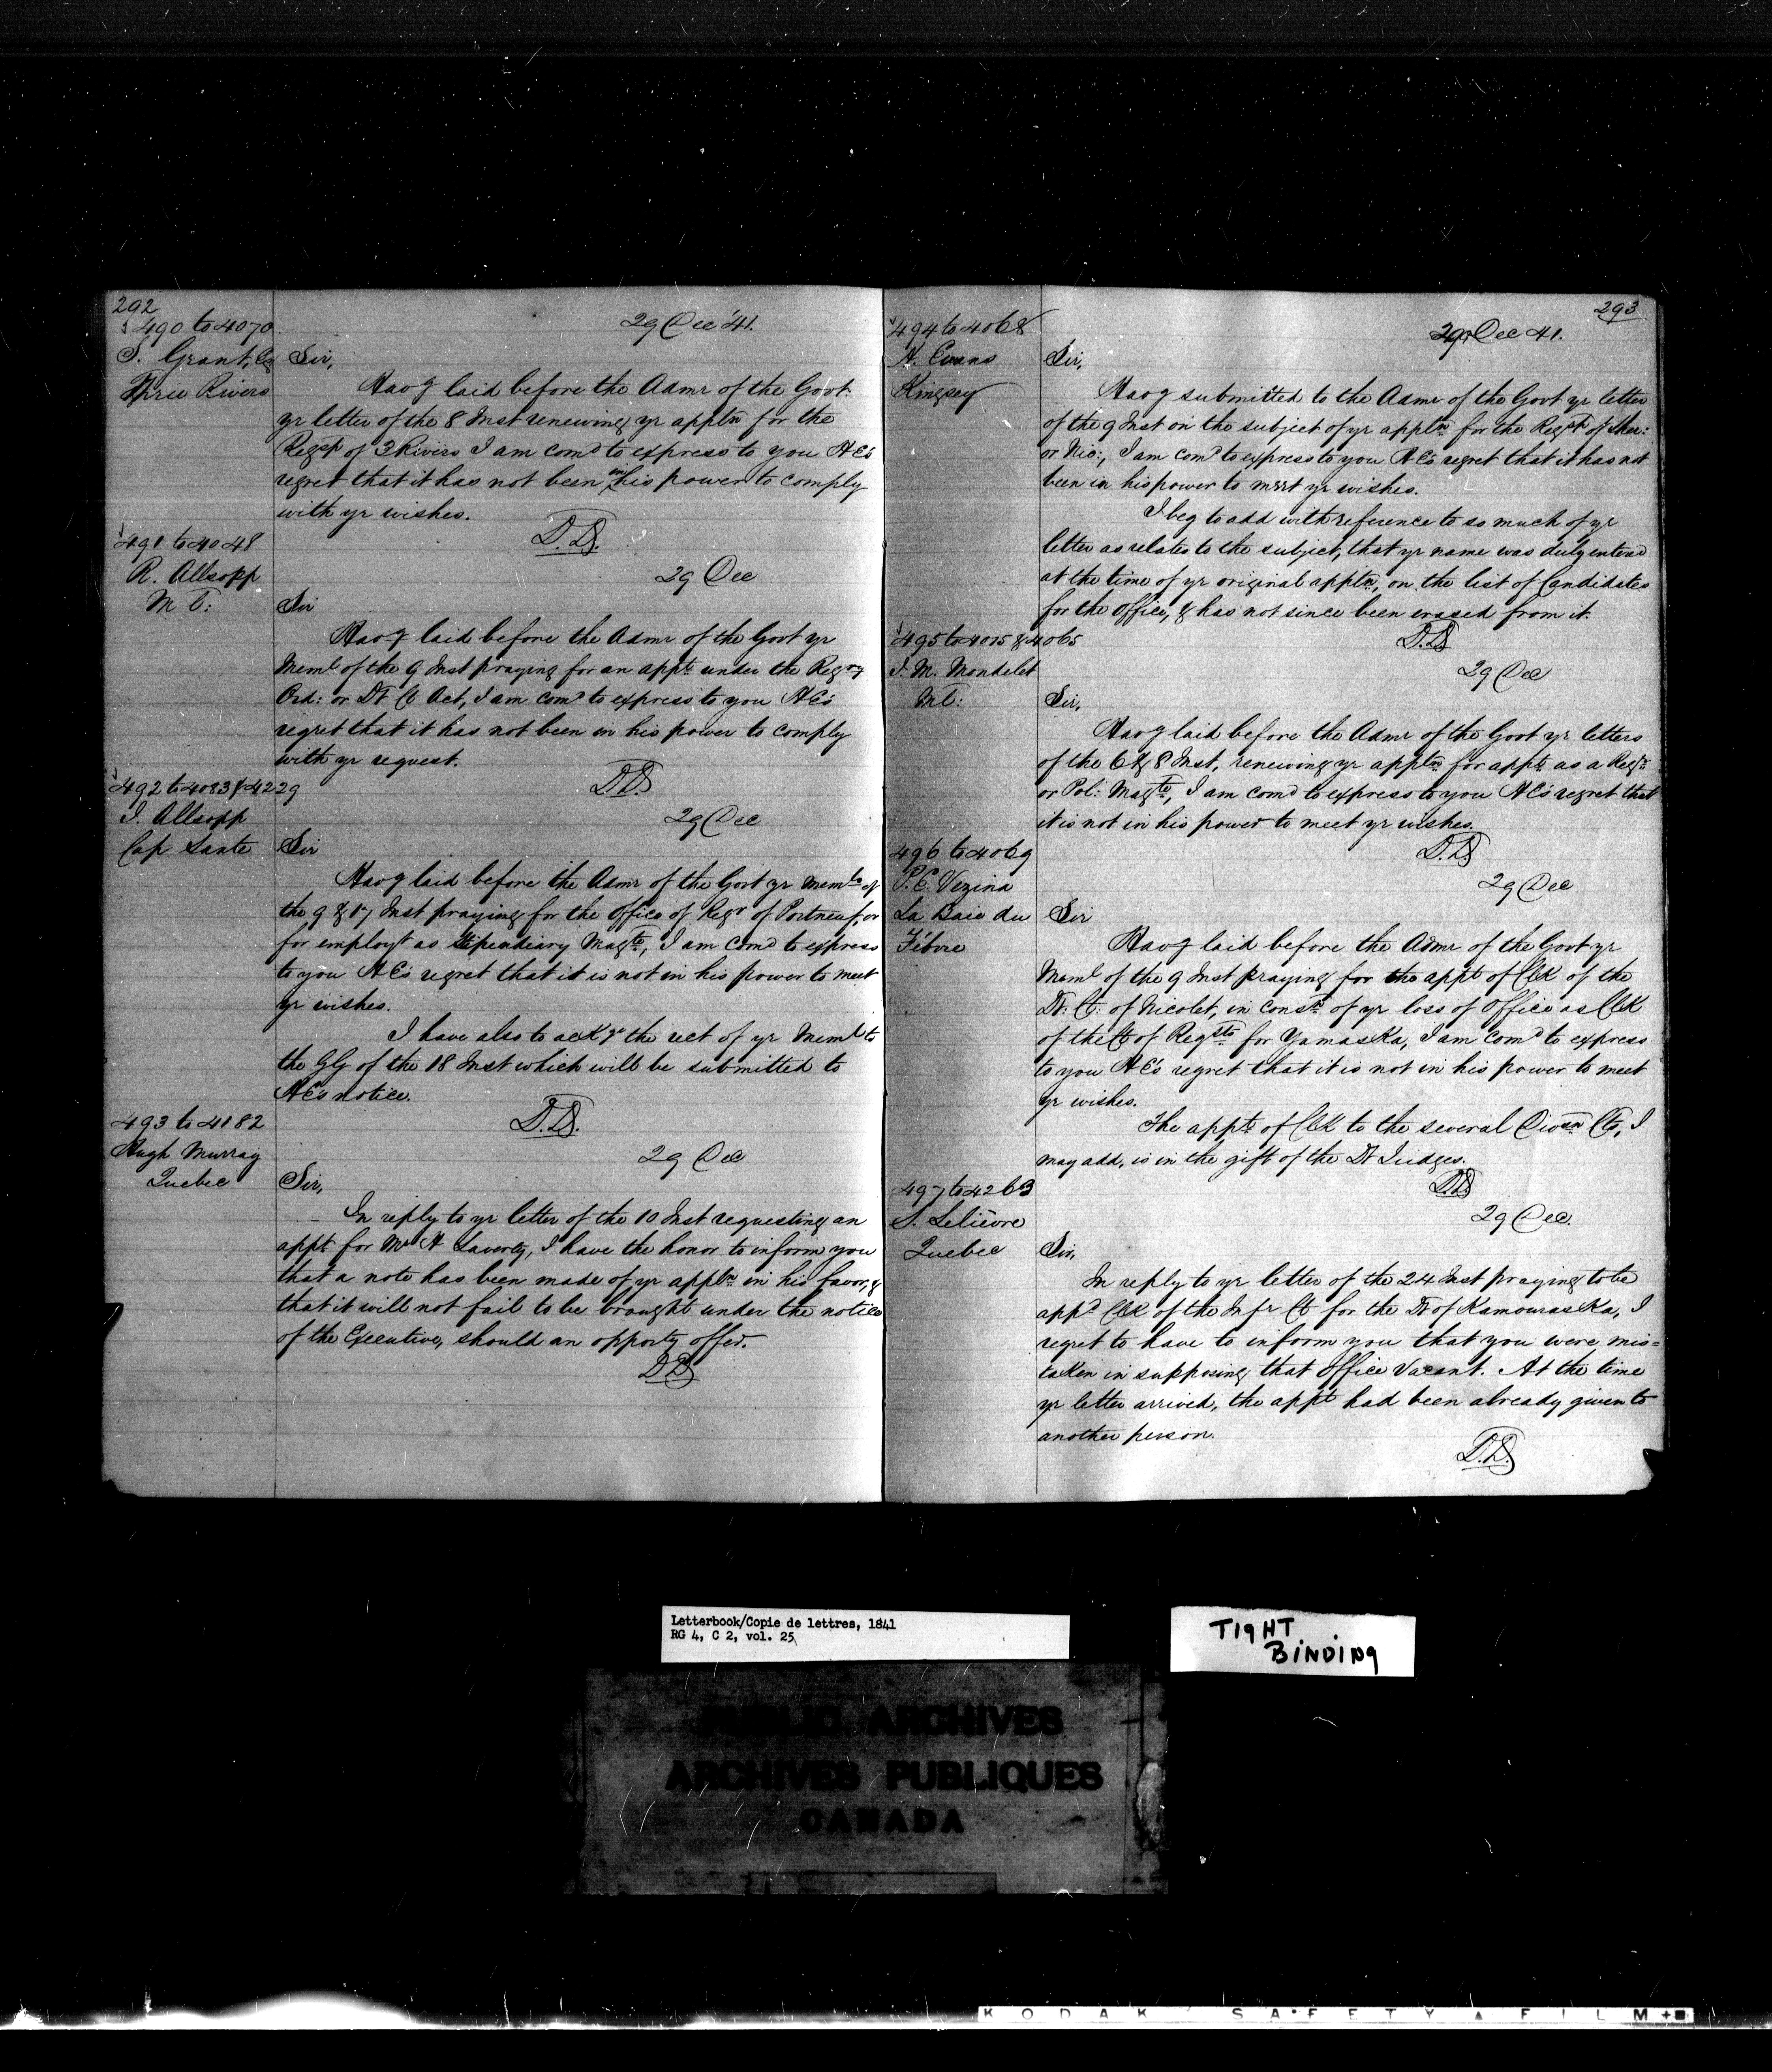 292
490 to 4070
S. Grant, Esq
Three Rivers
29 Dec '41.
Sir,
Havg laid before the Admr of the Govt.
yr letter of the 8 Inst renewing yr appltn for the
Regsp of 3 Rivers I am comd to express to you HE's
regret that it has not been in his power to comply
with yr wishes.
D.D.
491 to 4048
R. Allsopp
Ml:
29 Dec
Sir
Havg laid before the Admr of the Govt yr
Meml of the 9 Inst praying for an appt under the Regry
Ord: or Dt Ct Act, I am comd to express to you HE's
regret that it has not been in his power to comply
with yr request.
D.D.
492 to 4083 & 4229
J. Allsopp
Cap Santé
29 Dec
Sir
Havg laid before the Admr of the Govt yr Memls of
the 9 & 17 Inst praying for the office of Regr of Portneuf, or
for employt as Stipendiary Magte, I am comd to express
to you HE's regret that it is not in his power to meet
yr wishes.
I have also to ackge the rect of yr Meml to
the GG of the 18 Inst which will be submitted to
HE's notice.
D.D.
493 to 4182
Hugh Murray
Quebec
29 Dec
Sir,
In reply to yr letter of the 10 Inst requesting an
appt for Mr H Laverty, I have the honor to inform you
that a note has been made of yr appltn in his favor, &
that it will not fail to be brought under the notice
of the Executive, should an opporty offer.
D.D.
293
494 to 4068
H. Evans
Kingsey
29 Dec 41.
Sir,
Havg submitted to the Admr of the Govt yr letter
of the 9 Inst on the subject of yr appltn for the Regsp of Sher:
or Nic:, I am comd to express to you HE's regret that it has not
been in his power to meet yr wishes.
I beg to add with reference to so much of yr
letter as relates to the subject, that yr name was duly entered
at the time of yr original appltn, on the list of Candidates
for the office, & has not since been erased from it.
D.D.
495 to 4015 & 4065
J. M. Mondelet
Ml:
29 Dec
Sir,
Havg laid before the Admr of the Govt yr letters
of the 6 & 8 Inst, renewing yr appltn for appt as a Regr
or Pol: Magte, I am comd to express to you HE's regret that
it is not in his power to meet yr wishes.
D.D.
496 to 4069
P. E. Vezina
La Baie du
Febvre
29 Dec
Sir
Havg laid before the Admr of the Govt yr
Meml of the 9 Inst praying for the appt of Clk of the
Dt: Ct: of Nicolet, in consn of yr loss of office as Clk
of the Ct of Reqsts for Yamaska, I am comd to express
to you HE's regret that it is not in his power to meet
yr wishes.
The appt of Clk to the several Divsn Cts, I
may add, is in the gift of the Dt Judges.
D.D.
497 to 4263
S. Lelièvre
Quebec
29 Dec.
Sir,
In reply to yr letter of the 24 Inst praying to be
appd Clk of the Infr Ct for the Dt of Kamouraska, I
regret to have to inform you that you were mis=
taken in supposing that office vacant. At the time
yr letter arrived, the appt had been already given to
another person.
D.D.
Letterbook/Copie de lettres, 1841
RG 4, C 2, vol. 25
TIGHT
BINDING
PUBLIC ARCHIVES
ARCHIVES PUBLIQUES
CANADA
KODAK SAFETY FILM